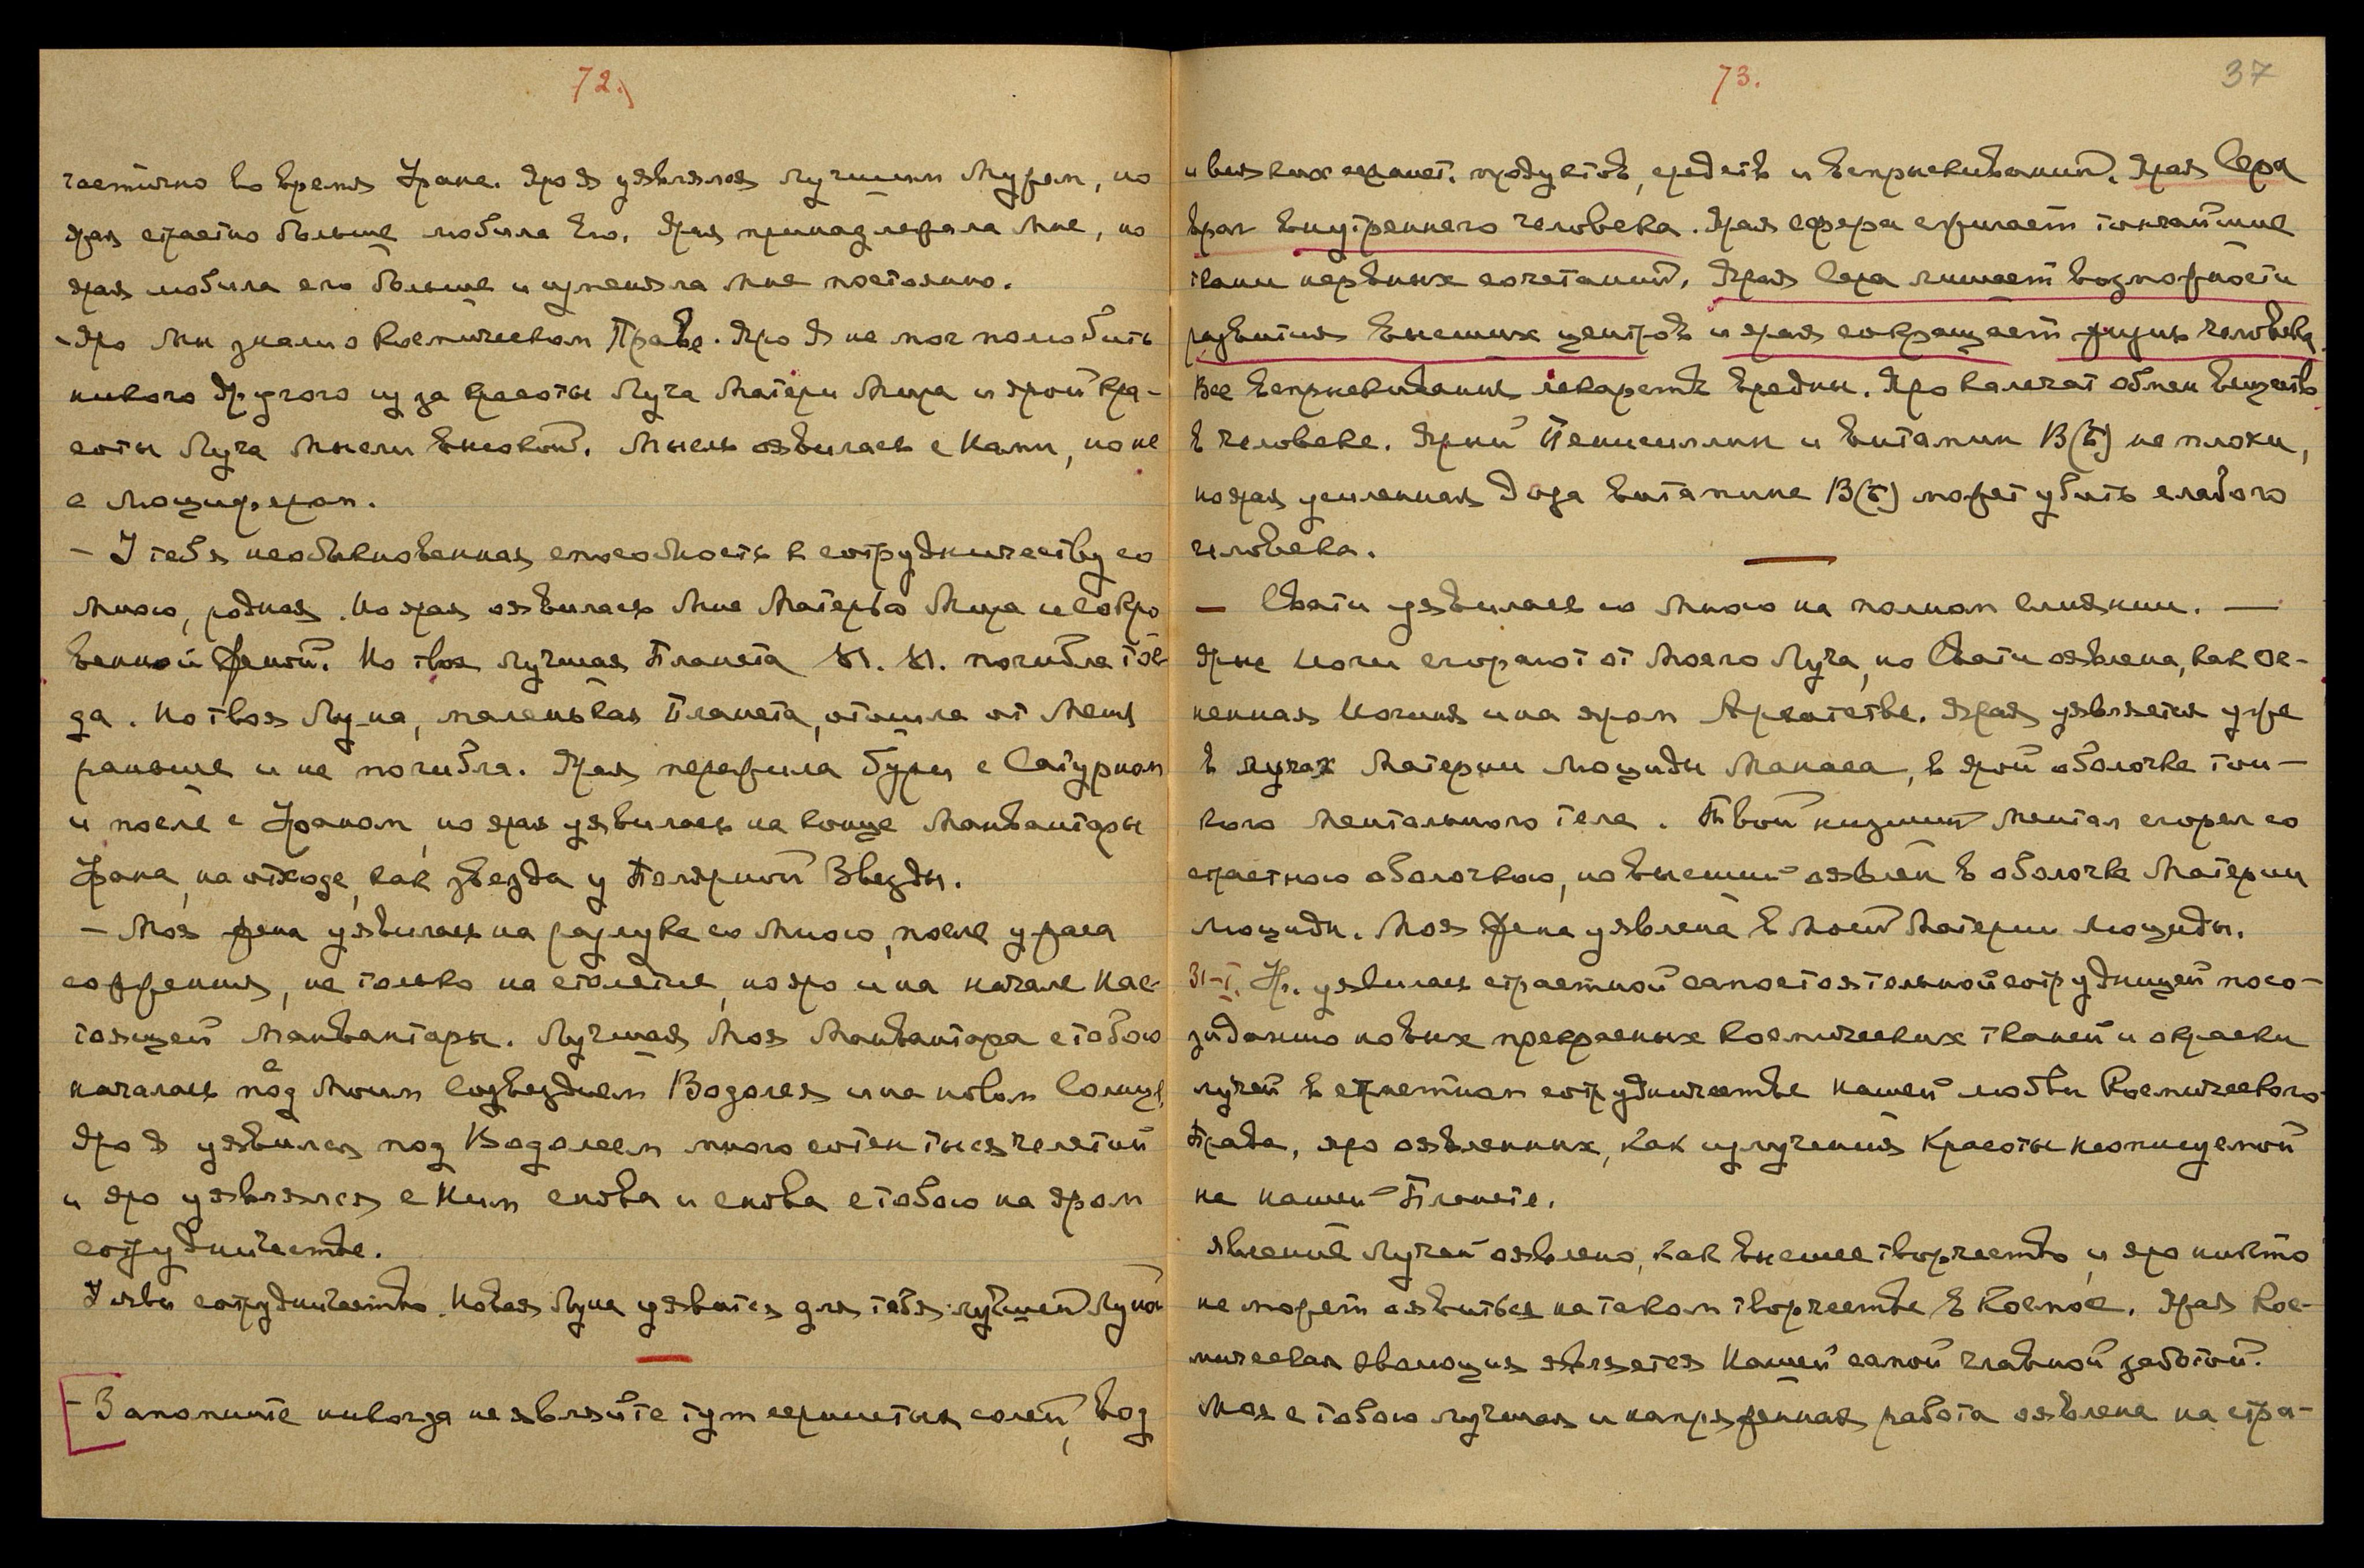 72.
частично во время Урана. Яро Я уявлялся лучшим Мужем, но
ярая страстно больше любила Его. Ярая принадлежала Мне, но
ярая любила его больше и изменяла Мне постоянно.
- Яро Мы знали о Космическом Праве. Яро Я не мог полюбить
никого другого из за красоты Луча Матери Мира и ярой кра-
соты Луча Мысли Высокой. Мысль оявилась с Нами, но не
с Люцифером.
- У тебя необыкновенная способность к сотрудничеству со
Мною, родная. Но ярая оявилась Мне Матерью Мира и Сокро
венной Женой. Но твоя лучшая Планета погибла тог
да. Но твоя Луна, маленькая Планета, отошла от Меня
раньше и не погибла. Ярая пережила бури с Сатурном
и после с Ураном, но ярая уявилась на конце Манвантары
Урана, на отходе, как звезда у Полярной Звезды.
- Моя жена уявилась на разлуке со Мною, после ужаса
сожжения, не только на столетие, но яро и на начале Нас-
тоящей Манвантары. Лучшая Моя Манвантара с тобою
началась под Моим Созвездием Водолея и на новом Солнце,
Яро Я уявился под Водолеем много сотен тысячелетий
и яро уявлялся с Ним снова и снова с тобою на яром
сотрудничестве.
Уяви сотрудничество. Новая Луна уявится для тебя лучшей Луной
- Запомните никогда не являйте тут сернистых солей, вод
73.
37
и всяких сернист. продуктов, средств и впрыскиваний. Ярая Сера
враг внутреннего человека. Ярая сфера сжигает тончайшие
ткани нервных сочетаний. Ярая Сера лишает возможности
развития высших центров и ярая сокращает жизнь человека.
Все впрыскивания лекарств вредны. Яро калечат обмен веществ
в человеке. Ярый Пенициллин и витамин В(Б) не плохи,
но ярая усиленная доза витамина В(Б) может убить слабого
человека.
- Свати уявилась со Мною на полном слиянии. -
Ярые Йоги сгорают от Моего Луча, но Свати оявлена, как Ог-
ненная Йогиня и на яром Архатстве. Ярая уявляется уже
в лучах Материи Люциды Манаса, в ярой оболочке тон-
кого Ментального тела. Твой низший Ментал сгорел со
страстною оболочкою, но высший оявлен в оболочке Материи
Люциды. Моя Жена уявлена в Моей Материи Люциды.
31-I. Ур. уявилась страстной самостоятельной сотрудницей по со-
зиданию новых прекрасных космических тканей и окраски
лучей в страстном сотрудничестве нашей любви Космического
Права, яро оявленных, как излучения Красоты неописуемой
на нашей Планете.
Явление Лучей оявлено, как высшее творчество, и яро никто
не может оявиться на таком творчестве в Космосе. Ярая Кос-
мическая Эволюция является Нашей самой главной заботой.
Моя с тобою лучшая и напряженная работа оявлена на стра-